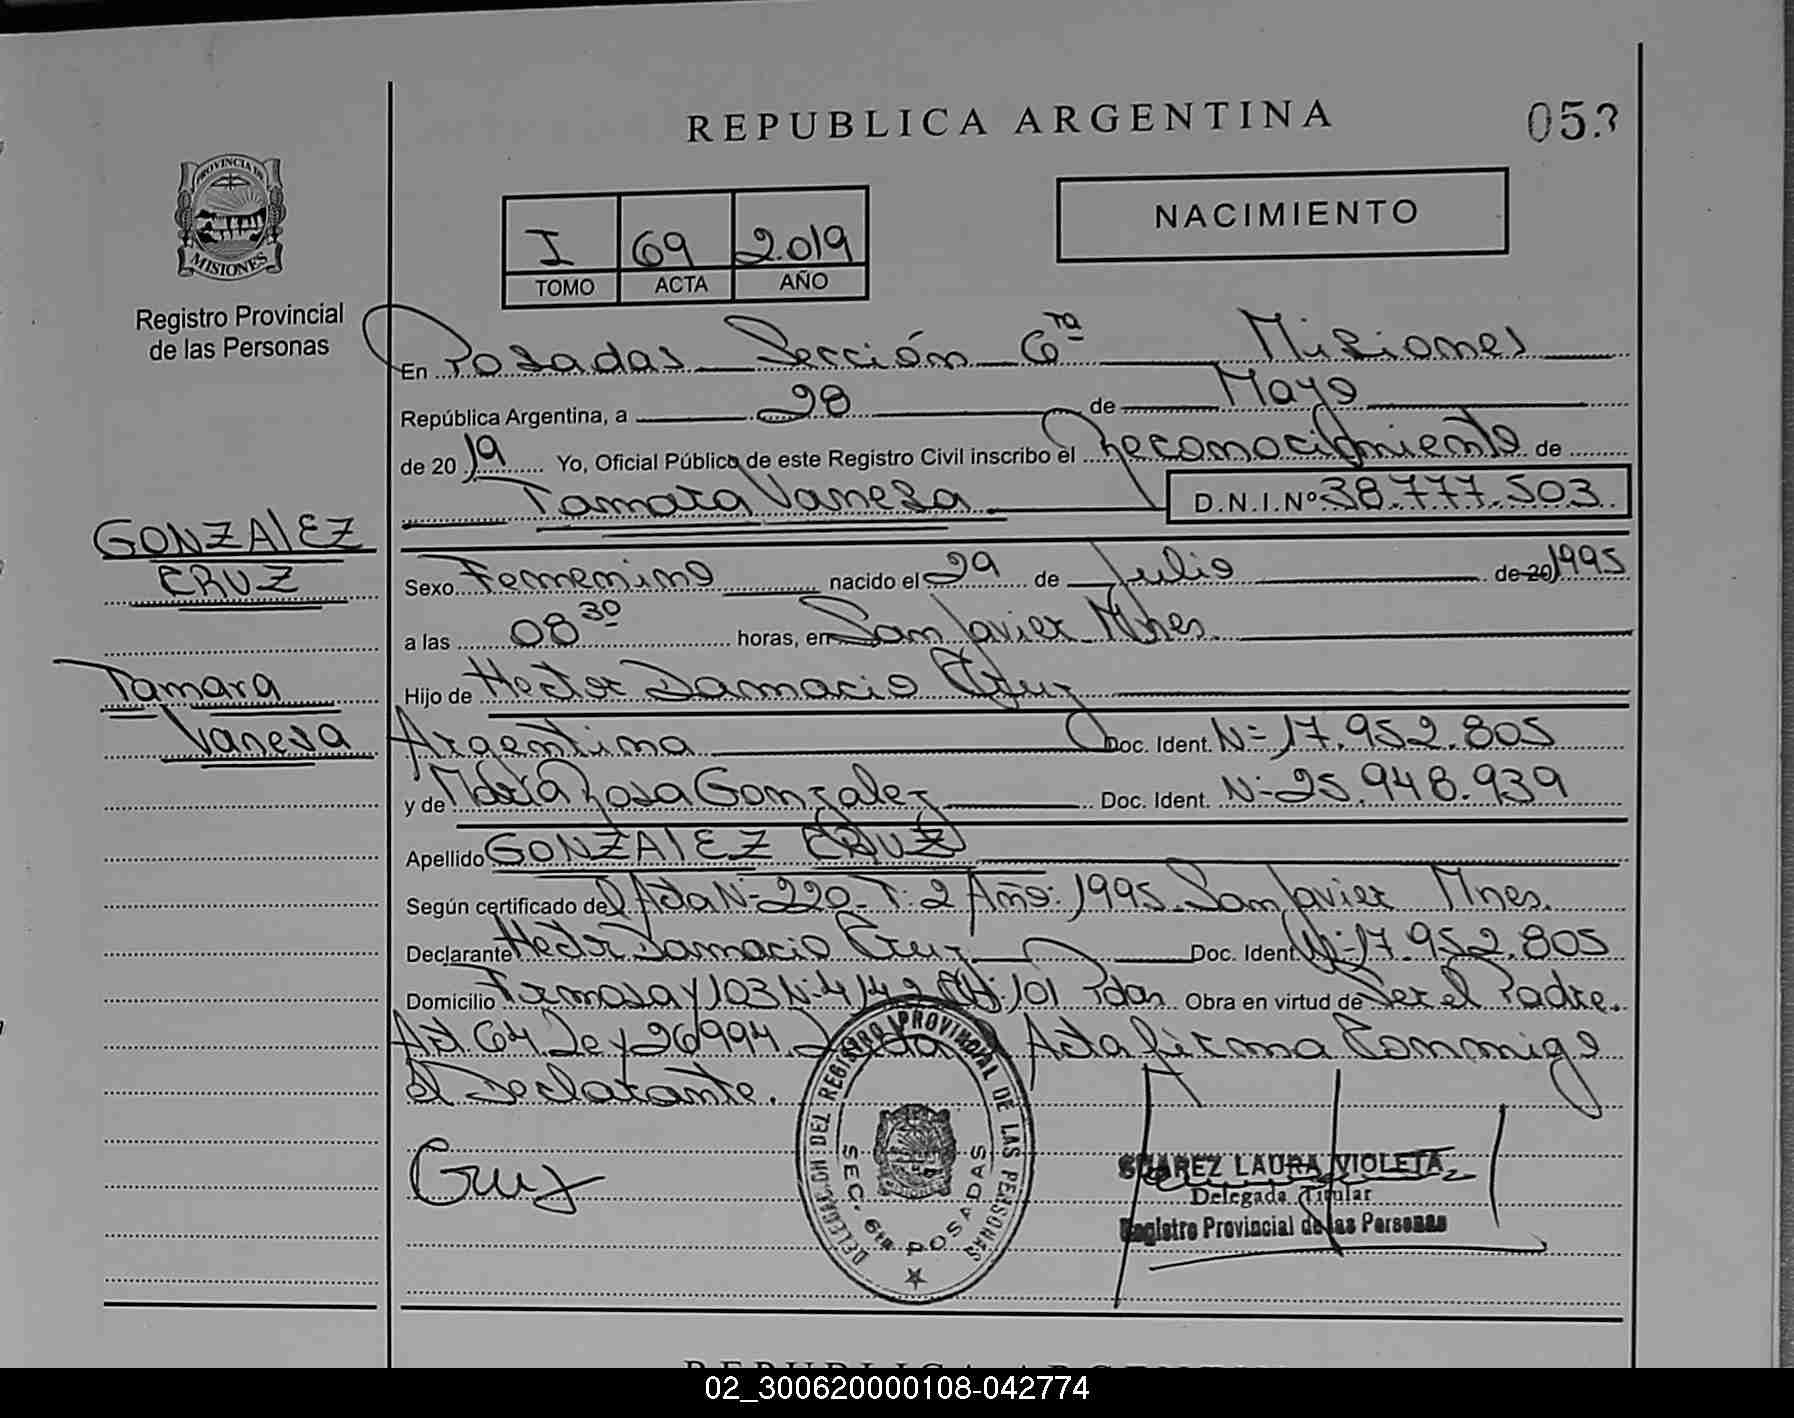 REPUBLICA ARGENTINA
053
PROVINCIA DE
MISIONES
Registro Provincial
de las Personas
NACIMIENTO
I 69 2019
TOMO ACTA AÑO
En Posadas Sección 6ta Misiones
República Argentina, a 28 de Mayo
de 2019 Yo, Oficial Público de este Registro Civil inscribo el Reconocimiento de
Tamara Vanesa D.N.I.Nº 38.777.503
GONZALEZ
CRUZ
Tamara
Vanesa
Sexo Femenino nacido el 29 de Julio de 20 1995
a las 08 30 horas, en San Javier Mnes.
Hijo de Hector Damacio Cruz
Argentina Doc. Ident. Nº 17.952.805
y de María Rosa Gonzalez Doc. Ident. Nº 25.948.939
Apellido GONZALEZ CRUZ
Según certificado del Acta Nº 220 T: 2 Año: 1995 San Javier Mnes.
Declarante Hector Damacio Cruz Doc. Ident. Nº 17.952.805
Domicilio Formosa y 103 Nº 4142 101 Pdas Obra en virtud de Ser el Padre.
Art 64 Ley 26994 Acta firma Conmigo
el Declarante.
Cruz
DELEGACION DEL REGISTRO PROVINCIAL DE LAS PERSONAS
SEC. 6ta POSADAS
SUAREZ LAURA VIOLETA
Delegada Titular
Registro Provincial de las Personas
02_300620000108-042774